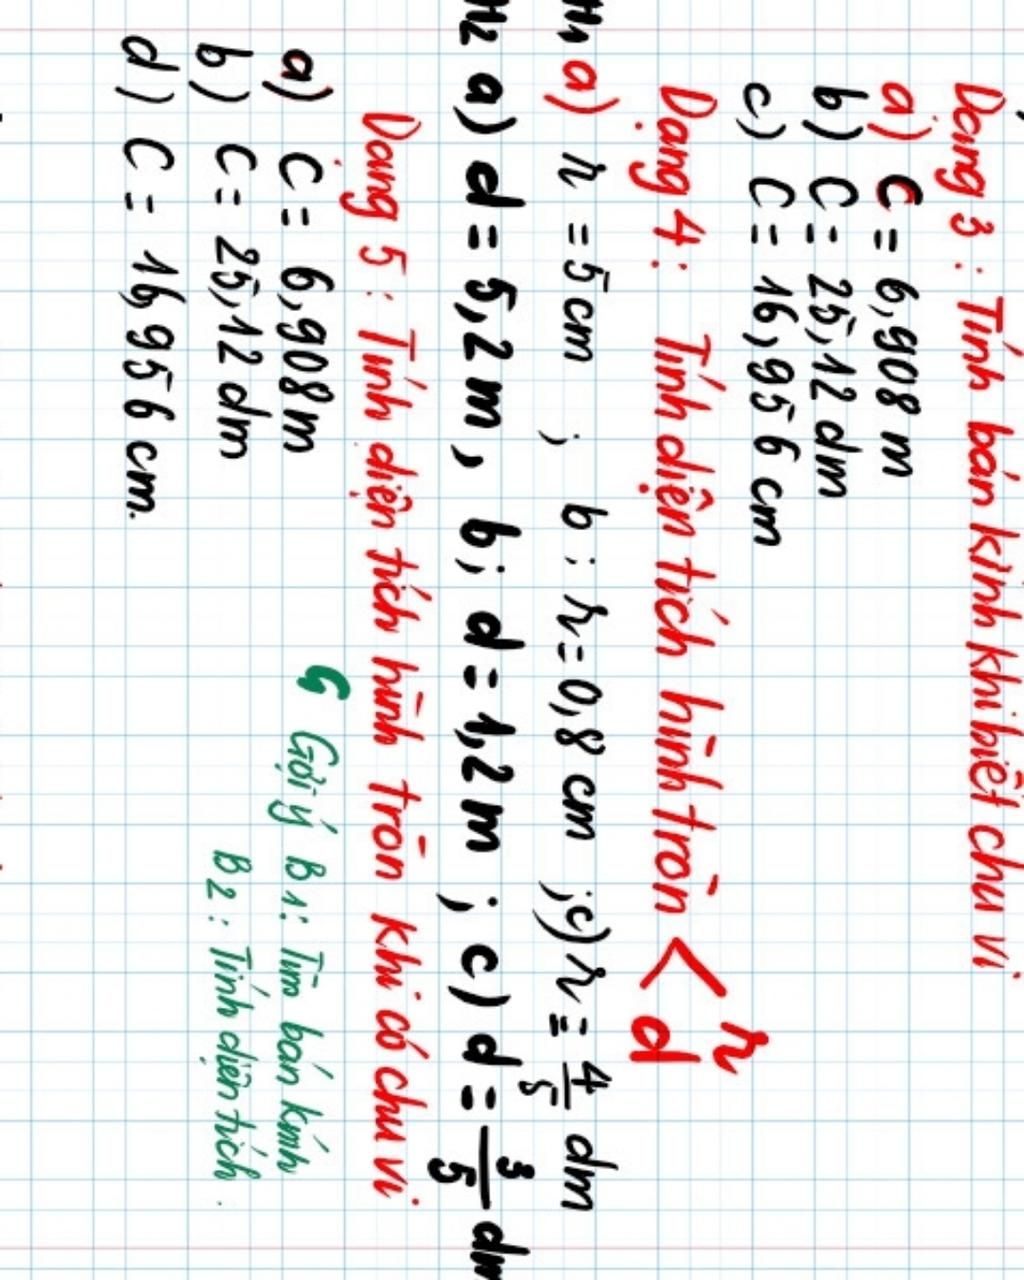 Dạng 3 : Tính bán kính khi biết chu vi
a) C = 6,908 m
b) C = 25,12 dm
c) C = 16,956 cm
Dạng 4 : Tính diện tích hình tròn < r
d
H1 a) r = 5 cm ; b : r = 0,8 cm ; c) r = 4/5 dm
H2 a) d = 5,2 m , b; d = 1,2 m ; c) d = 3/5 dm
Dạng 5 : Tính diện tích hình tròn khi có chu vi
a) C = 6,908 m
b) C = 25,12 dm
d) C = 16,956 cm.
Gợi ý B1: Tìm bán kính
B2 : Tính diện tích.